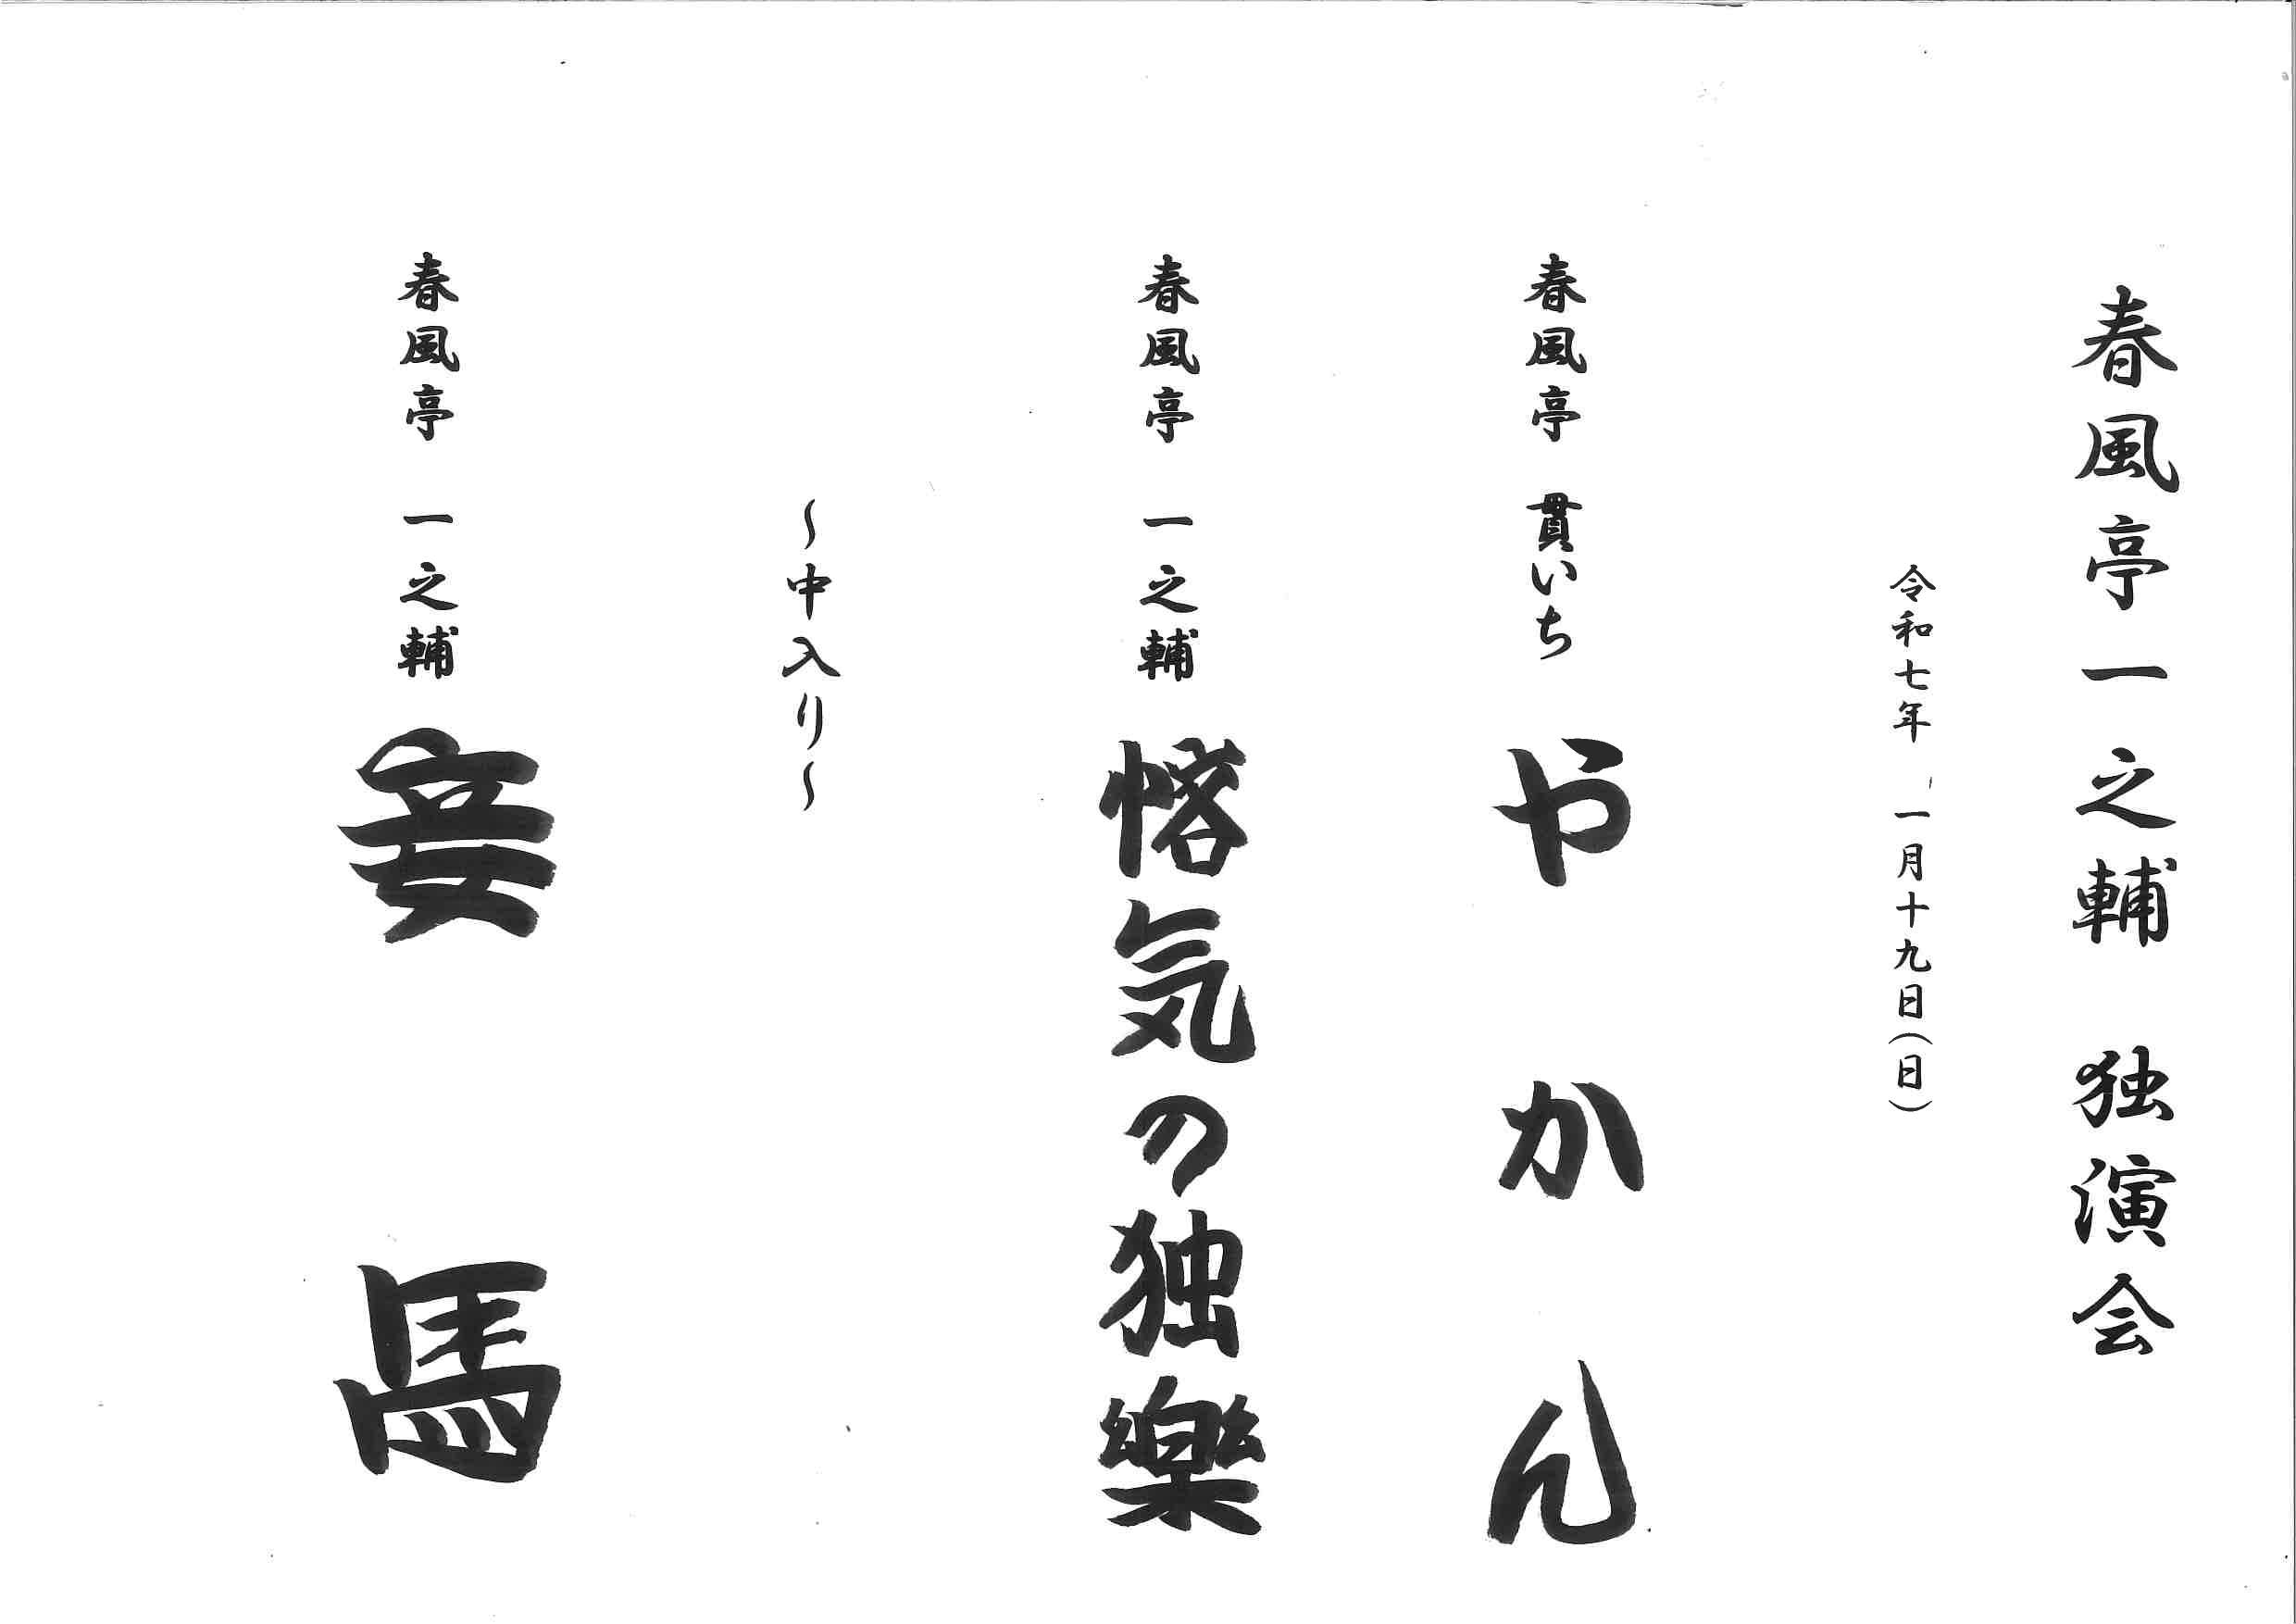 春風亭一之輔 独演会
令和七年 一月十九日(日)
春風亭 貫いち やかん
春風亭 一之輔 悋気の独楽
～中入り～
春風亭 一之輔 妾馬